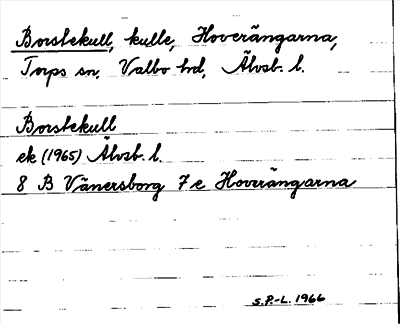 Borstekull, kulle, Hoverängarna,
Torps sn, Valbo hd, Älvsb. l.
Borstekull
ek (1965) Älvsb. l.
8 B Vänersborg 7 e Hoverängarna
S.P.-L. 1966